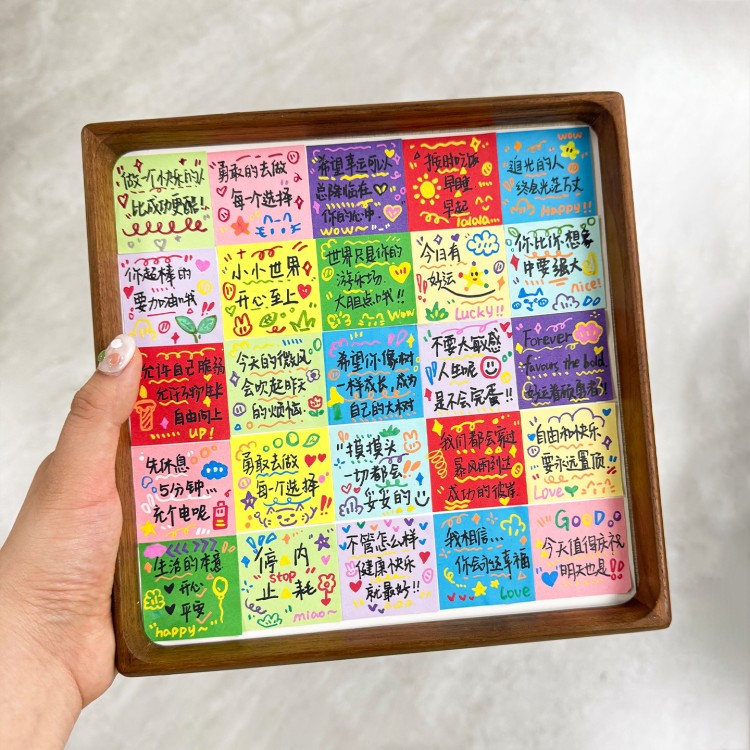 做一个快乐的人
比成功更酷!!
勇敢的去做
每一个选择
希望幸运可以
总降临在
你的心中
wow~
按时吃饭
早睡
早起
lalala...
wow
追光的人
终会光芒万丈
Happy!!
你超棒的
要加油哦
小小世界
开心至上
世界只是你的
游乐场
大胆点哦!!
Wow
今日有
好运
Lucky!!
你比你想象
中要强大
nice!
允许自己脆弱
自由向上
UP!
今天的微风
会吹起昨天
的烦恼
希望你像树
一样成长,成为
自己的大树
不要太敏感
人生呢
是不会完蛋!!
Forever
favours the bold
好运眷顾勇者!!
先休息
5分钟...
充个电呢
勇敢去做
每一个选择
摸摸头
一切都会
妥妥的
我们都会穿过
暴风雨到达
成功的彼岸
自由和快乐
要永远置顶
Love
生活的本意
开心
平安
happy~
停 内
stop
止 耗
miao~
不管怎么样
健康快乐
就最好!!
我相信...
你会永远幸福
Love
GOOD
今天值得庆祝
明天也是!!